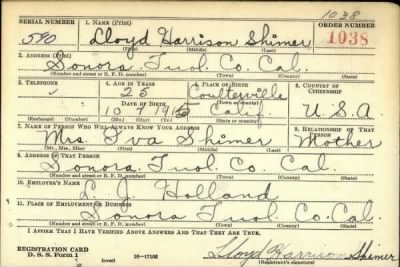 1038
SERIAL NUMBER 1. NAME (Print) ORDER NUMBER
590 Lloyd Harrison Shimer 1038
(First) (Middle) (Last)
2. ADDRESS (Print)
Sonora Tuol. Co. Cal.
(Number and street or R. F. D. number) (Town) (County) (State)
3. TELEPHONE 4. AGE IN YEARS 5. PLACE OF BIRTH 6. COUNTRY OF CITIZENSHIP
25 Coulterville
DATE OF BIRTH (Town or county)
10 7 1915 Cal. U.S.A
(Mo.) (Day) (Yr.) (State or country)
7. NAME OF PERSON WHO WILL ALWAYS KNOW YOUR ADDRESS 8. RELATIONSHIP OF THAT PERSON
Mrs. Iva Shimer Mother
(Mr., Mrs., Miss) (First) (Middle) (Last)
9. ADDRESS OF THAT PERSON
Sonora Tuol. Co. Cal.
(Number and street or R. F. D. number) (Town) (County) (State)
10. EMPLOYER'S NAME
L. J. Holland
11. PLACE OF EMPLOYMENT OR BUSINESS
Sonora Tuol. Co. Cal.
(Number and street or R. F. D. number) (Town) (County) (State)
I AFFIRM THAT I HAVE VERIFIED ABOVE ANSWERS AND THAT THEY ARE TRUE.
REGISTRATION CARD
D. S. S. Form 1 16—17105 Lloyd Harrison Shimer
(Registrant's signature)